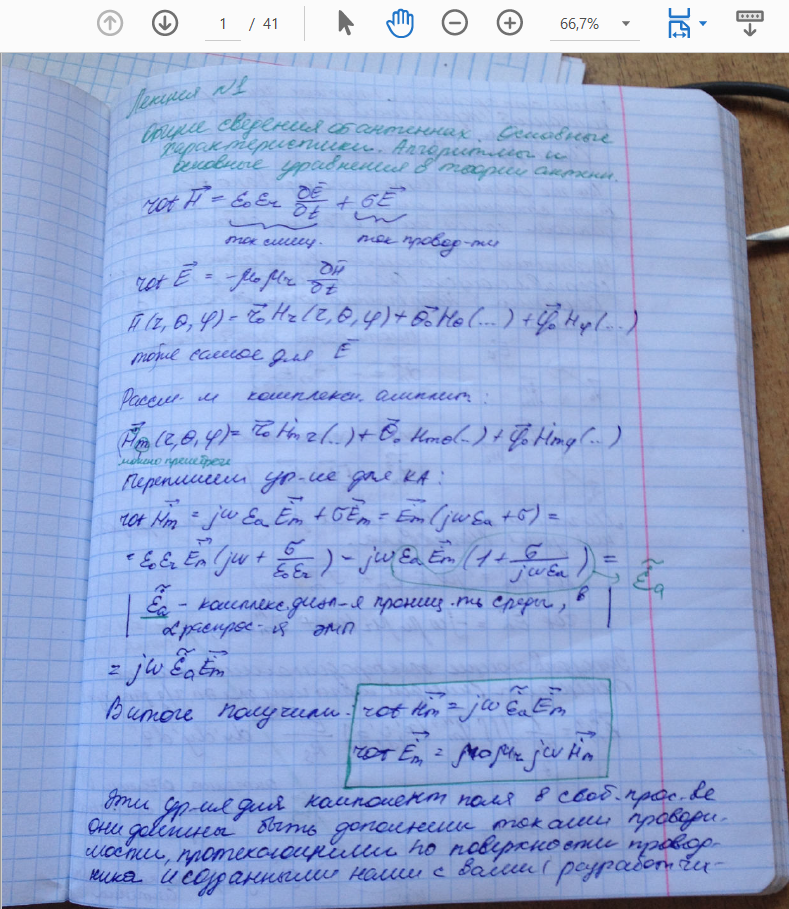 1 / 41
66,7%
Лекция №1
Общие сведения об антеннах. Основные
характеристики. Алгоритмы и
основные уравнения в теории антенн.
rot H⃗ = ε₀εr ∂E⃗/∂t + σE⃗
ток смещ. ток провод-ти
rot E⃗ = -μ₀μr ∂H⃗/∂t
H⃗(r,θ,φ) = r⃗₀Hr(r,θ,φ) + θ⃗₀Hθ(...) + φ⃗₀Hφ(...)
тоже самое для E⃗
Рассм-м комплексн. амплит:
Ḣ⃗m(r,θ,φ) = r⃗₀Ḣmr(...) + θ⃗₀Ḣmθ(..) + φ⃗₀Ḣmφ(...)
можно
Перепишем ур-ие для КА:
rot Ḣ⃗m = jωεaĖ⃗m + σĖ⃗m = Ė⃗m(jωεa + σ) =
= ε₀εrĖ⃗m(jω + σ/ε₀εr) - jωεaĖ⃗m(1 + σ/jωεa) =
ε̃a
ε̃a - комплекс. диэл-я прониц-ть среды, в
распрос-я ЭМП
= jωε̃aĖ⃗m
В итоге получили: rot Ḣ⃗m = jωε̃aĖ⃗m
rot Ė⃗m = μ₀μr jωḢ⃗m
Эти ур-ия для компонент поля в своб. прос-ве
они должны быть дополнены токами проводи-
мости, протекающими по поверхности провод-
ника и созданными нами с вами (разработчи-